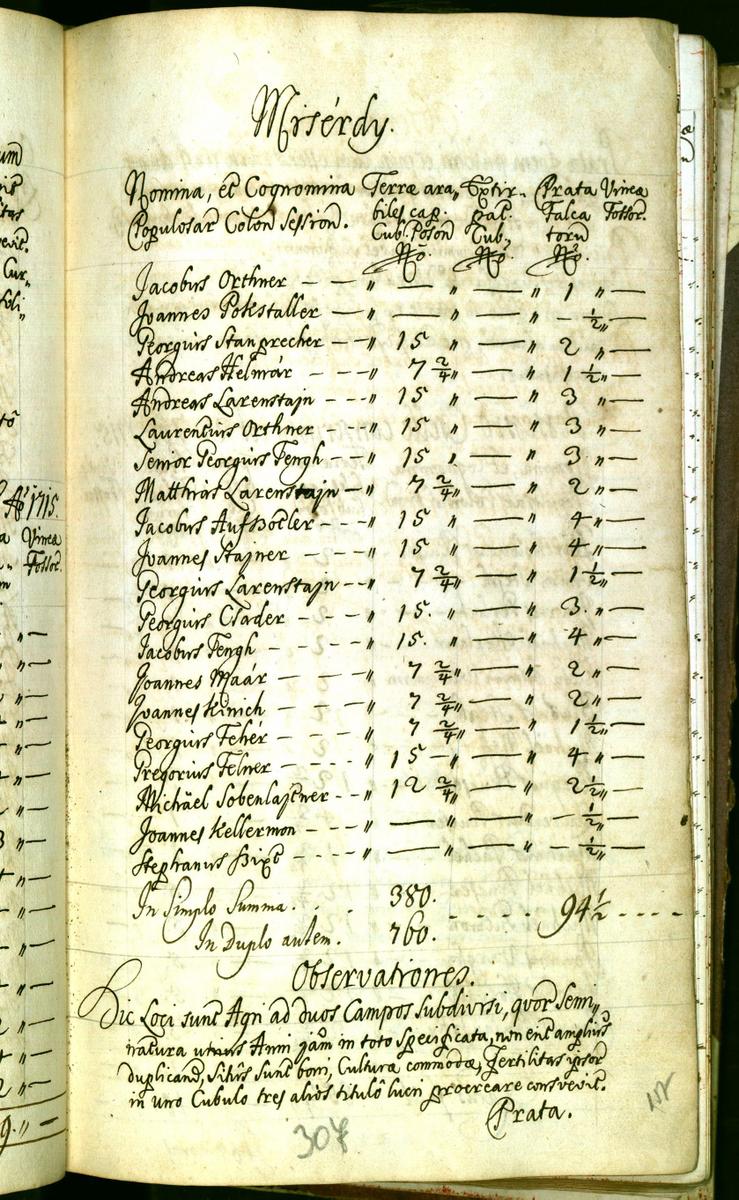 Misérdy.
Nomina, et Cognomina Terræ ara„ Extir„ Prata Vineæ
Populosar Colon Session. biles cap. pat. Falca Fossor.
Cub. Poson Cub. torum
No. No. No.
Jacobus Orthner — — „ — „ — „ 1 „ —
Joannes Pokstaller — — „ — „ — „ — ½ „ —
Georgius Stangrecher — — „ 15 „ — „ 2 „ —
Andreas Helmár — - - „ 7 2/4 „ — „ 1 ½ „ —
Andreas Larenstajn - - - „ 15 „ — „ 3 „ —
Laurentius Orthner - - - „ 15 „ — „ 3 „ —
Senior Georgius Fengh - - - „ 15 „ — „ 3 „ —
Matthias Larenstajn „ 7 2/4 „ — „ 2 „ —
Jacobus - - - „ 15 „ — „ 4 „ —
Joannes Stajner — - - „ 15 „ — „ 4 „ —
Georgius Larenstajn - - „ 7 2/4 „ — „ 1 ½ „ —
Georgius Czader — - - - „ 15. „ — „ 3. „ —
Jacobus Fengh - - - - „ 15. „ — „ 4 „ —
Joannes Maár — - - „ 7 2/4 „ — „ 2 „ —
Joannes Kinich — - - „ 7 2/4 „ — „ 2 „ —
Georgius Fehér — - - „ 7 2/4 „ — „ 1 ½ „ —
Gregorius Felner — - - - „ 15 — „ — „ 4 „ —
Michäel - - „ 12 2/4 „ — „ 2 ½ „ —
Joannes Kellermon - - - - „ — „ — „ — ½ „ —
Stephanus - - - - „ — „ — „ — ½ „ —
In Simplo Summa. . . 380. - - - - - 94 ½ - - - -
In Duplo autem. 760.
Observationes.
Hic Loci sunt Agri ad duos Campos subdivisi, quor Semi„
natura utrius Anni jam in toto specificata, non est amplius
duplicand, Sitûs sunt boni, Culturæ commodæ, Fertilitas ipsor
in uno Cubulo tres alios titulô lucri procreare consvevit.
Prata.
307